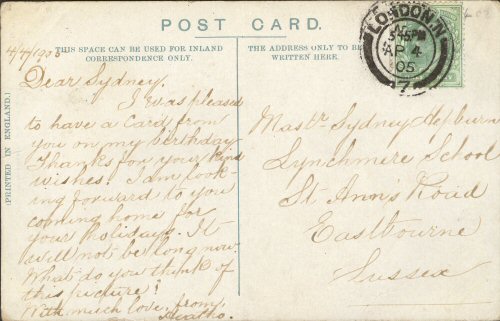 POST CARD.
THIS SPACE CAN BE USED FOR INLAND
CORRESPONDENCE ONLY.
THE ADDRESS ONLY TO BE
WRITTEN HERE.
(PRINTED IN ENGLAND.)
LONDON. N
5.45PM
AP 4
05
7
4/4/1905
Dear Sydney.
I was pleased
to have a card from
you on my birthday.
Thanks for your kind
wishes! I am look-
ing forward to you
coming home for
your holidays. It
will not be long now.
What do you think of
this picture?
With much love, from,
Mastr Sydney Hepburn
Lynchmere School
St Ann's Road
Eastbourne
Sussex